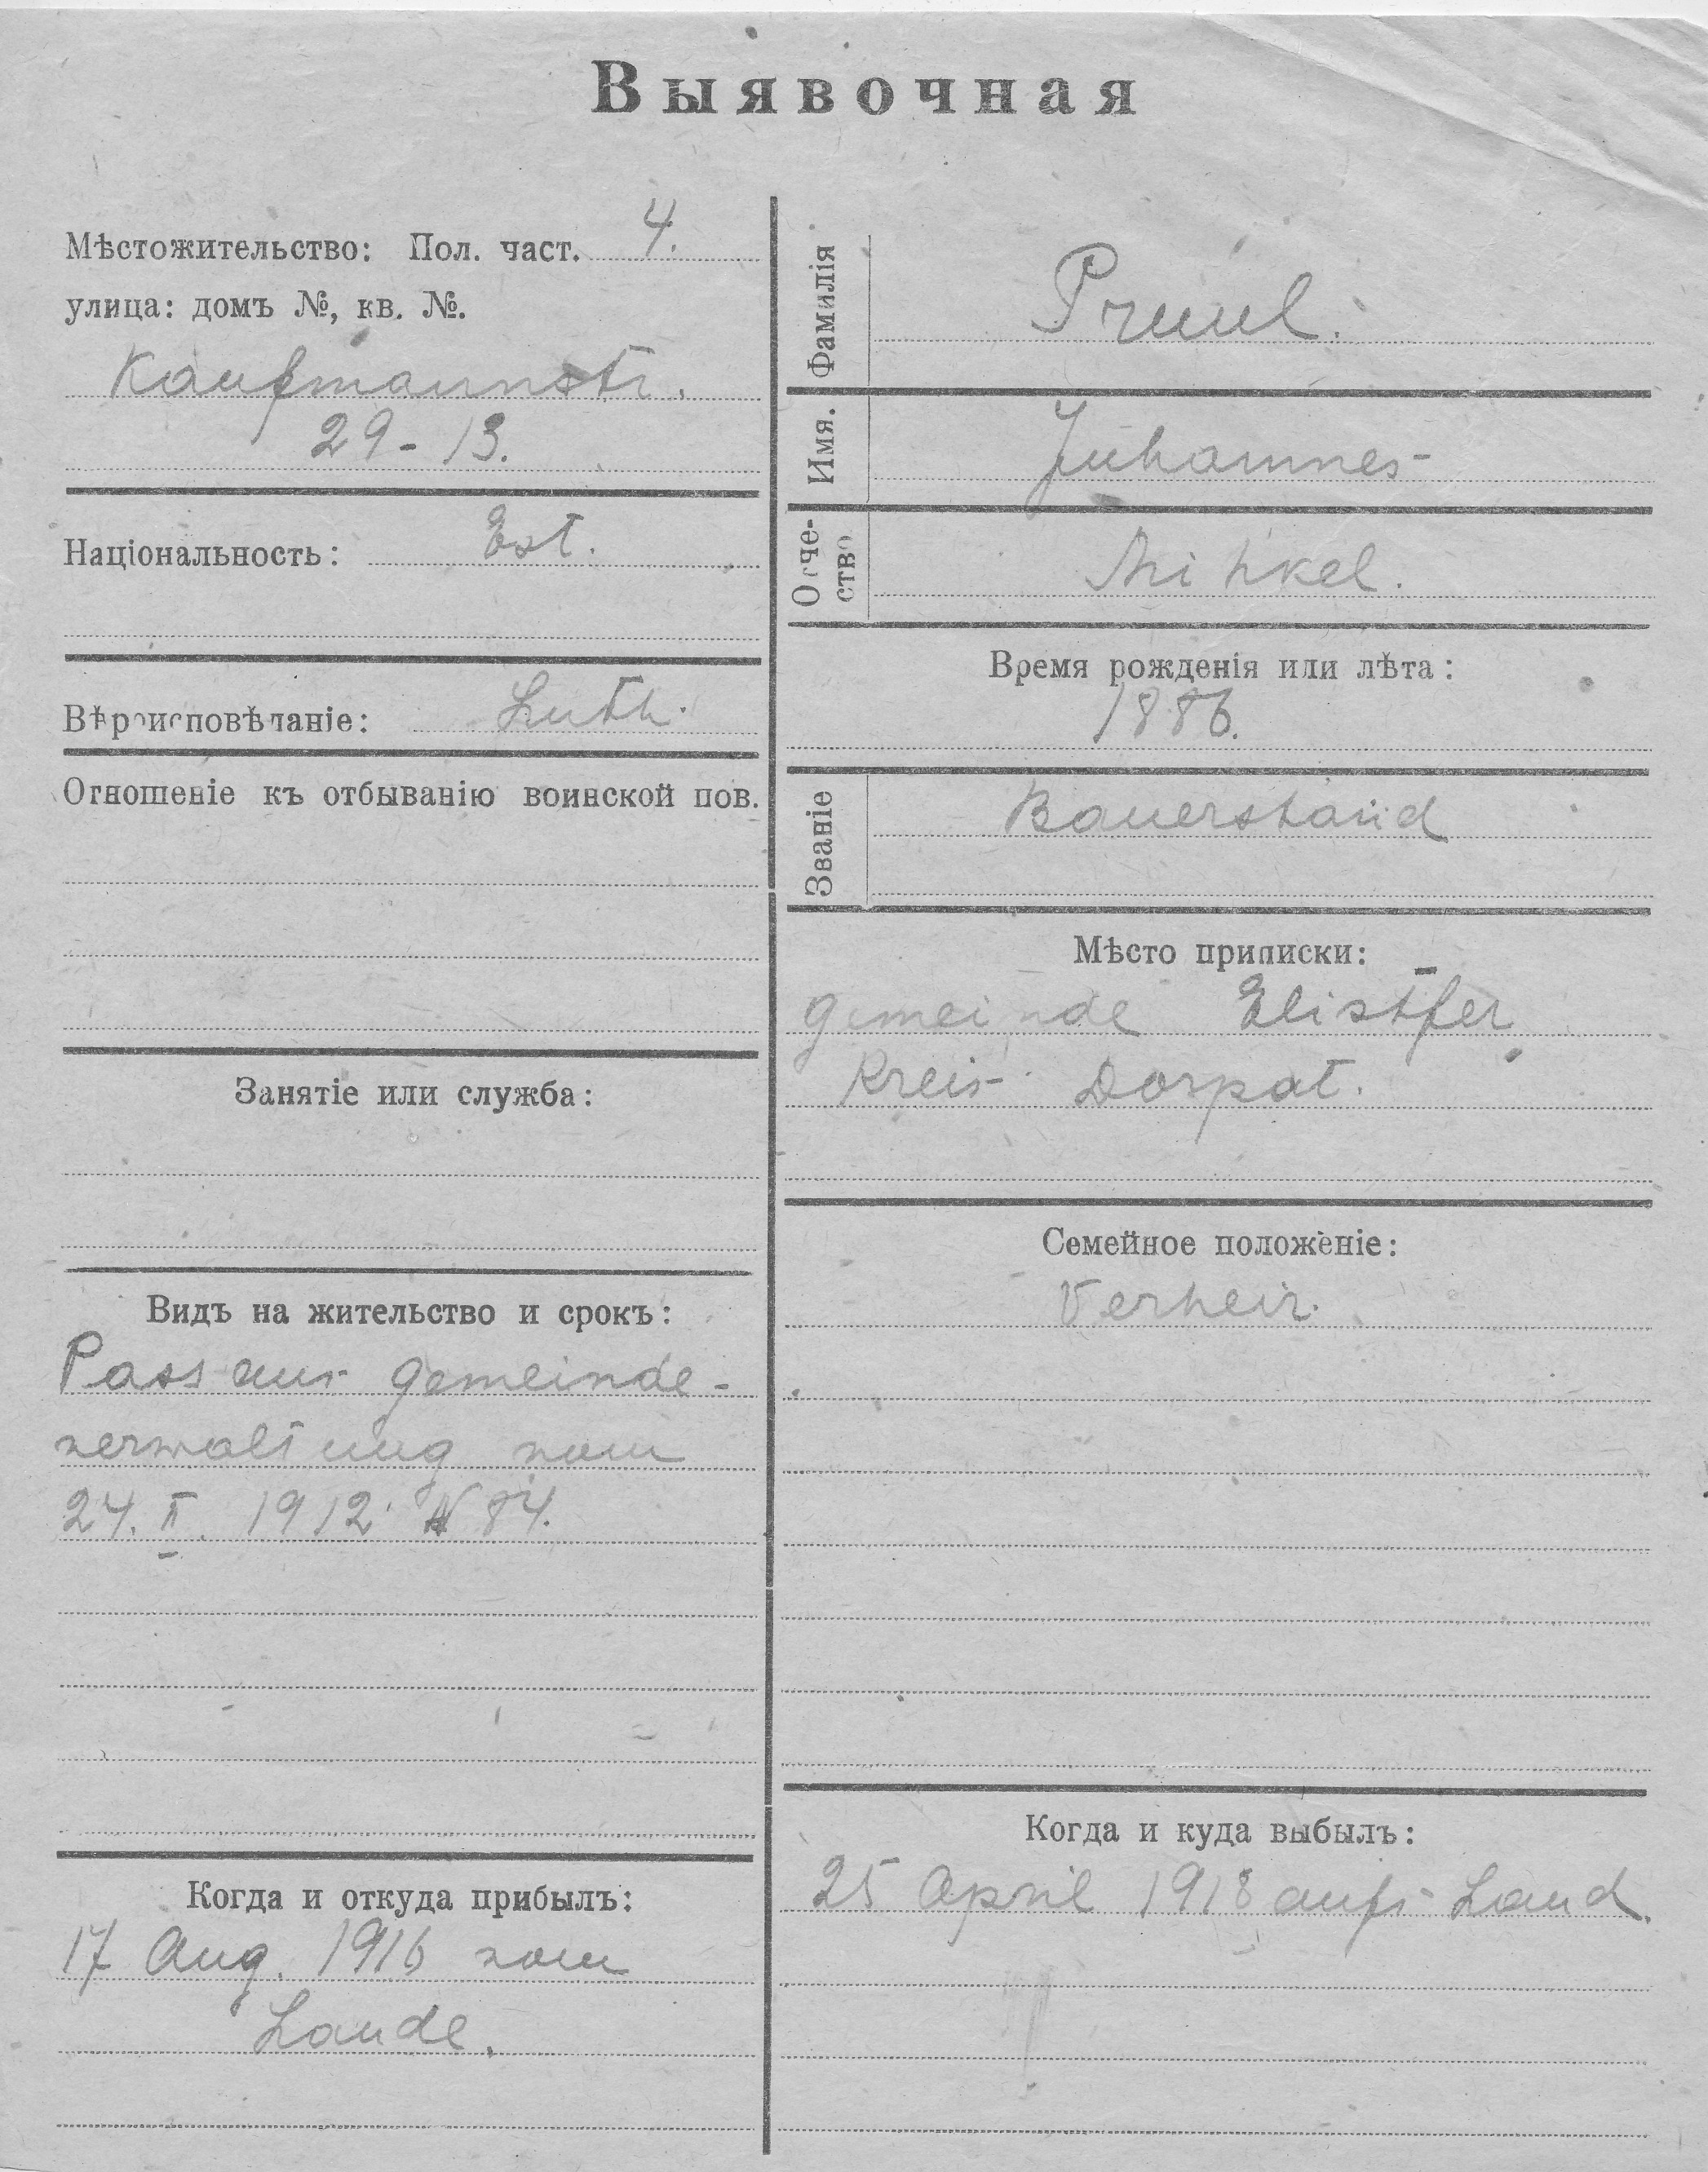 Выявочная
Мѣстожительство: Пол. част. 4.
улица: домъ №, кв. №.
Kaufmannstr.
29-13.
Національность: Est.
Вѣроисповѣданіе: Luth.
Отношеніе къ отбыванію воинской пов.
Занятіе или служба:
Видъ на жительство и срокъ:
Pass aus Gemeinde-
verwaltung vom
24. II. 1912 N 84.
Когда и откуда прибылъ:
17 Aug. 1916 vom
Lande.
Фамилія Pruul.
Имя. Juhannes
Отче-
ство Mihkel.
Время рожденія или лѣта:
1886.
Званіе Bauerstand
Мѣсто приписки:
Gemeinde Elistfer
Kreis Dorpat.
Семейное положеніе:
Verheir.
Когда и куда выбылъ:
25 April 1918 aufs Land.